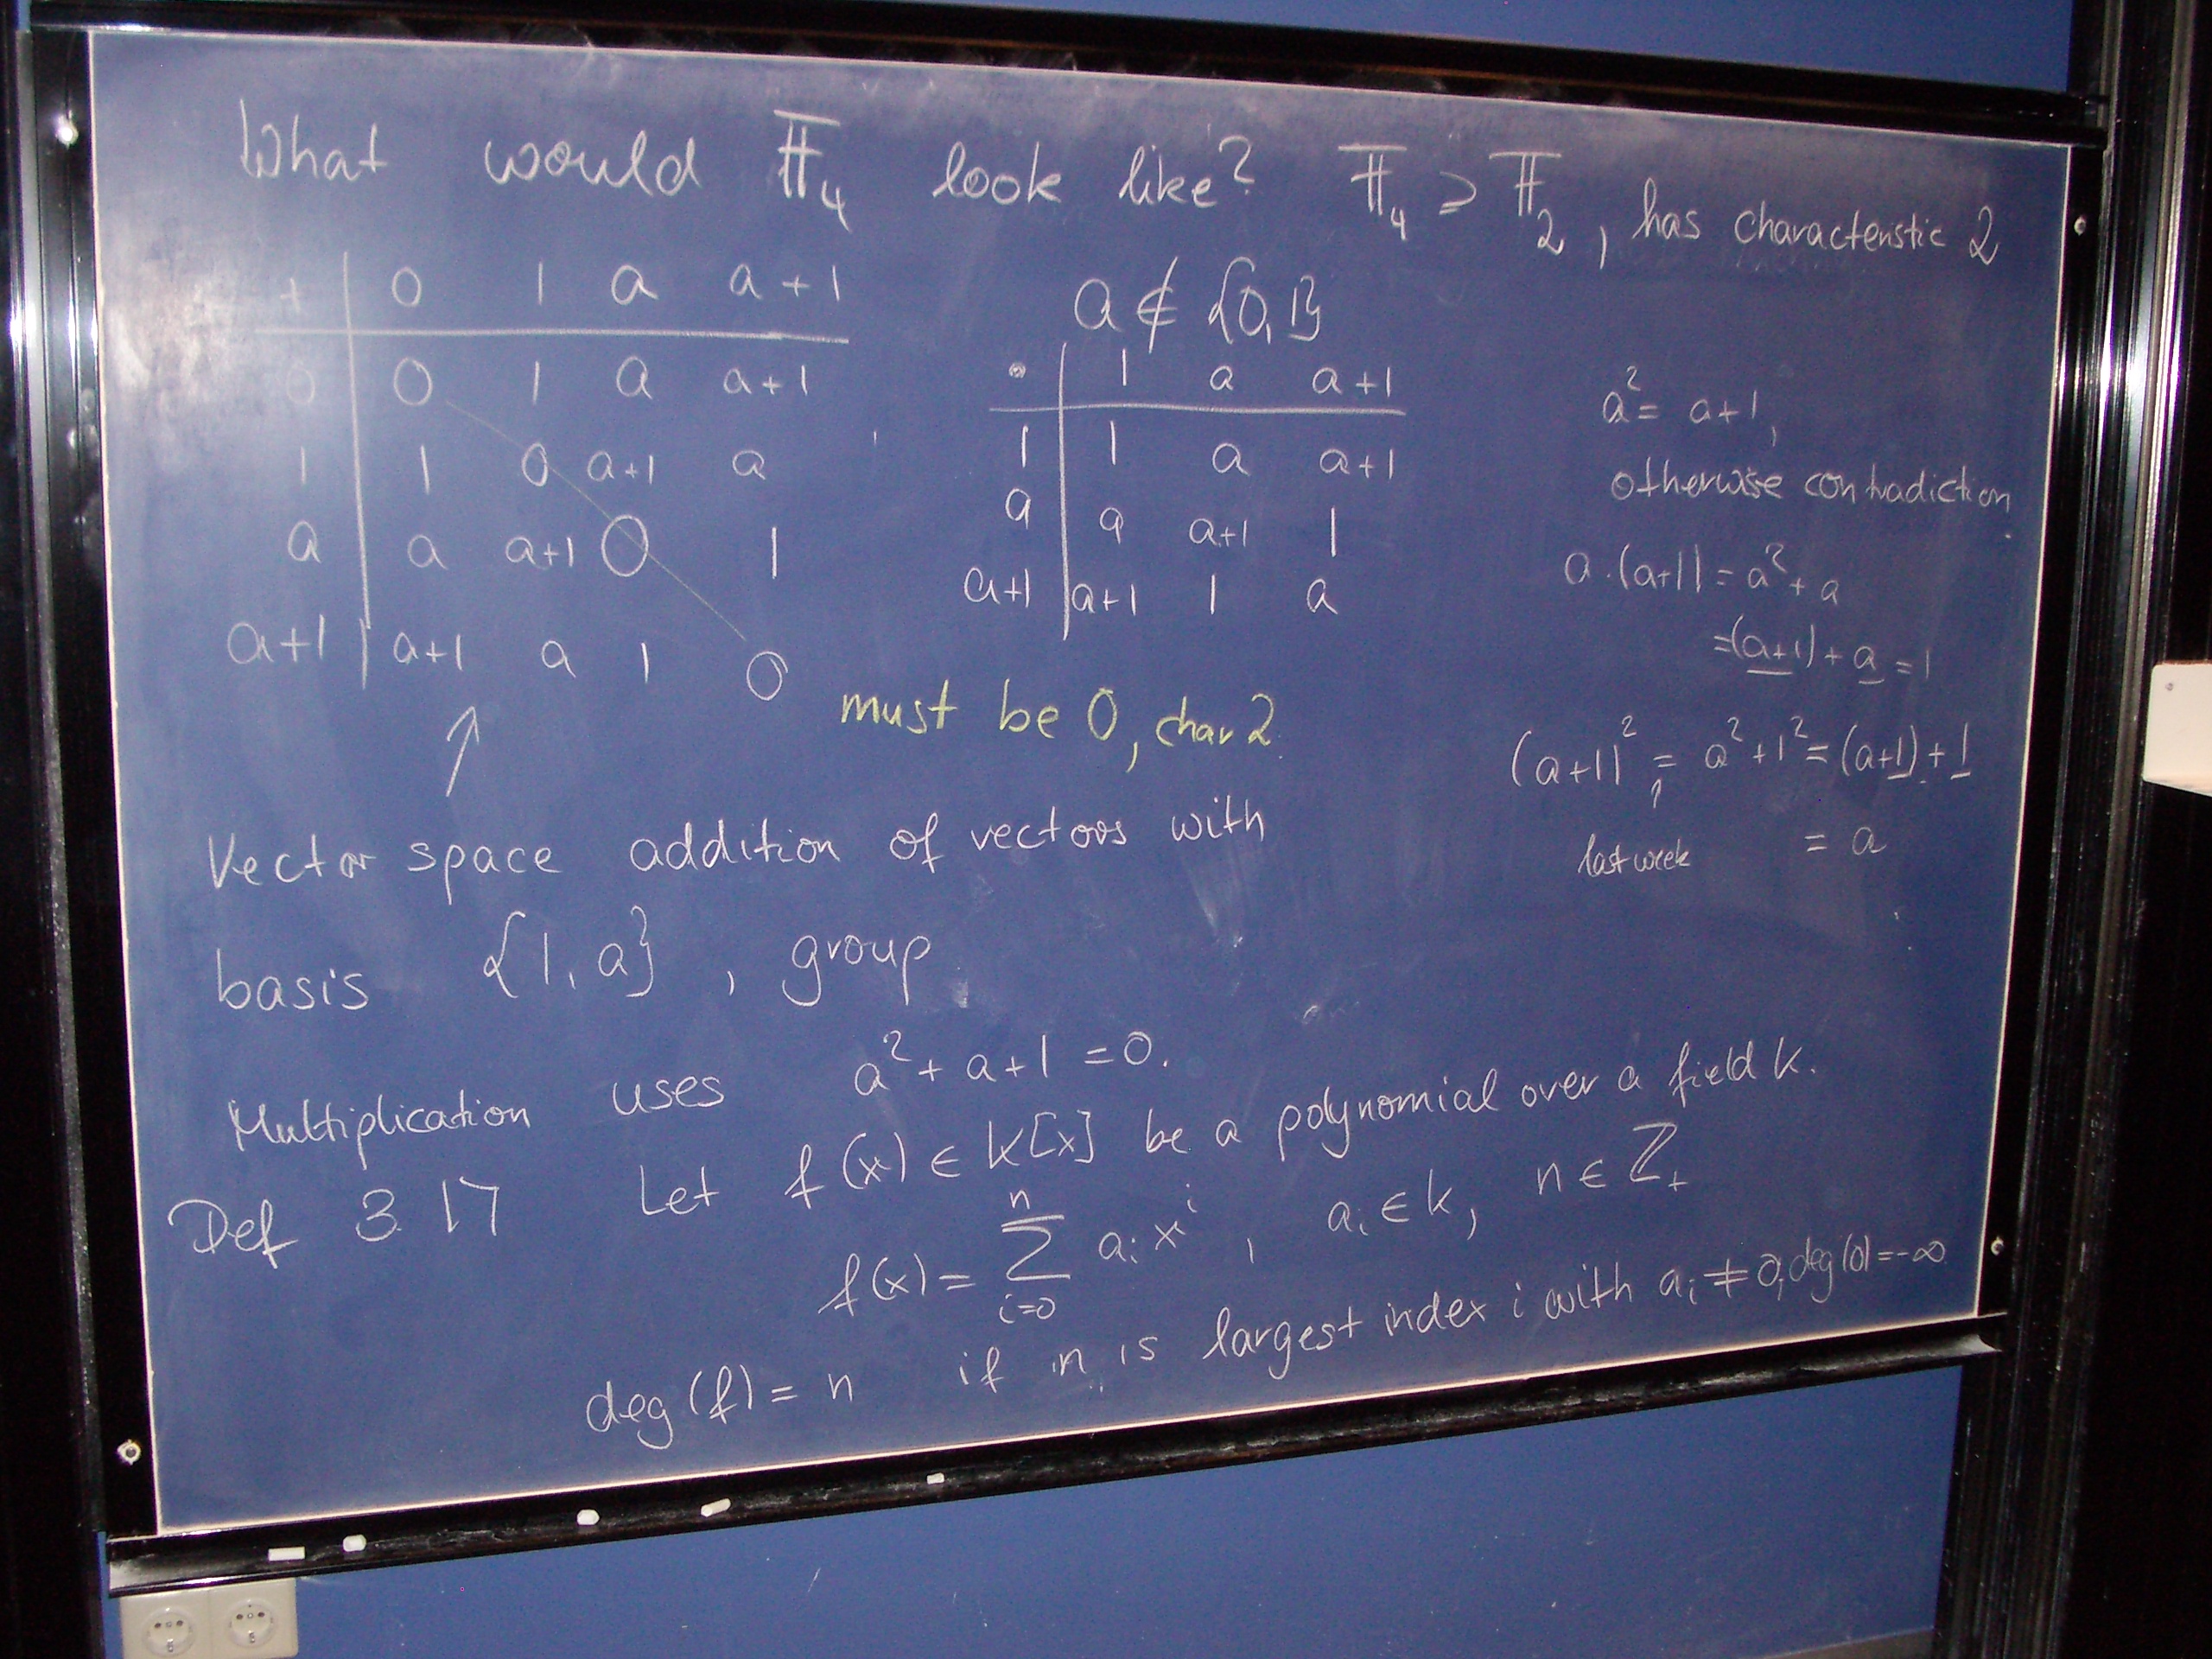 What would 𝔽₄ look like? 𝔽₄ ⊃ 𝔽₂, has characteristic 2
+ | 0 1 a a+1
0 | 0 1 a a+1
1 | 1 0 a+1 a
a | a a+1 0 1
a+1 | a+1 a 1 0
must be 0, char 2
a ∉ {0,1}
• | 1 a a+1
1 | 1 a a+1
a | a a+1 1
a+1 | a+1 1 a
a² = a+1,
otherwise contradiction.
a·(a+1) = a² + a
= (a+1) + a = 1
(a+1)² = a² + 1² = (a+1) + 1
↑
last week = a
↑
Vector space addition of vectors with
basis {1, a}, group
Multiplication uses a² + a + 1 = 0.
Def 3.17 Let f(x) ∈ K[x] be a polynomial over a field K.
f(x) = ∑ᵢ₌₀ⁿ aᵢ xⁱ, aᵢ ∈ K, n ∈ ℤ₊
deg(f) = n if n is largest index i with aᵢ ≠ 0, deg(0) = -∞